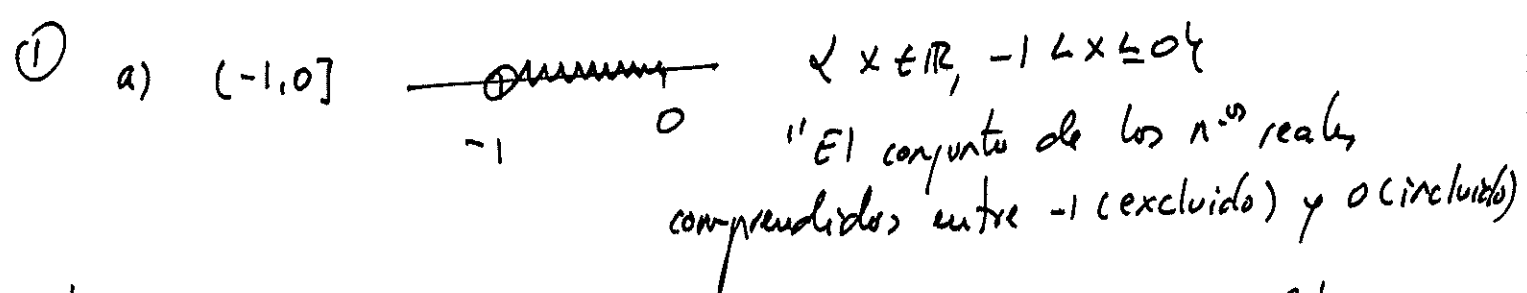 ① a) (-1,0] -1 0 { x ∈ ℝ, -1 < x ≤ 0}
"El conjunto de los n.os reales
comprendidos entre -1 (excluido) y 0 (incluido)